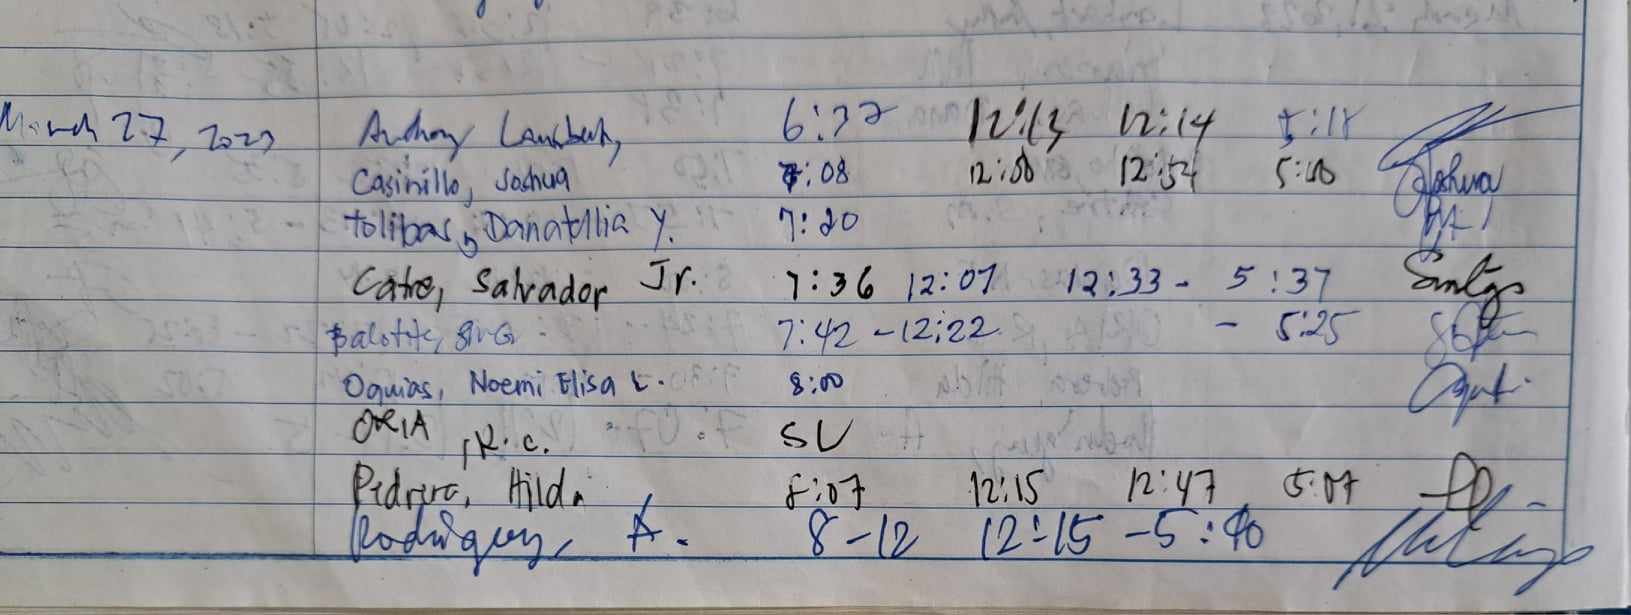 March 27, 2023 Anthony Lambert, 6:37 12:13 12:14 5:18
Casinillo, Joshua 7:08 12:00 12:54 5:00 Joshua
tolibas, Danatellia Y. 7:20
Catre, Salvador Jr. 7:36 12:07 12:33 - 5:37
7:42 - 12:22 - 5:25
Oquias, Noemi Elisa L. 8:00
ORIA, R.C. SL
Pedrera, Hilda 8:07 12:15 12:47 5:07
Rodriguez, A. 8-12 12:15 - 5:40